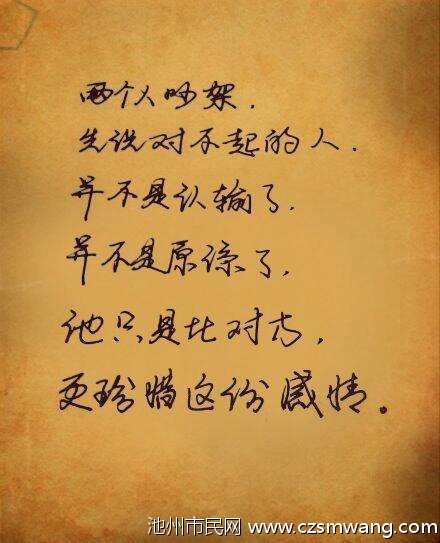 两个人吵架.
先说对不起的人.
并不是认输了.
并不是原谅了.
他只是比对方,
更珍惜这份感情。
池州市民网 www.czsmwang.com